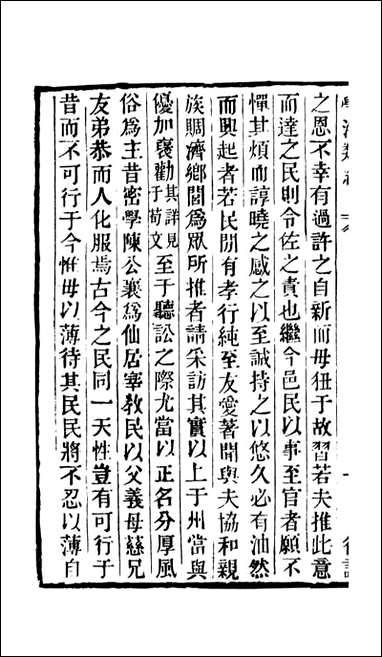 學海類編
之恩不幸有過許之自新而毋狃于故習若夫推此意
而達之民則令佐之責也繼今邑民以事至官者願不
憚其煩而諄曉之感之以至誠持之以悠久必有油然
而興起者若民閒有孝行純至友愛著聞與夫協和親
族賙濟鄉閭爲眾所推者請采訪其實以上于州當與
優加襃勸其詳見于荀文至于聽訟之際尤當以正名分厚風
俗爲主昔密學陳公襄爲仙居宰教民以父義母慈兄
友弟恭而人化服焉古今之民同一天性豈有可行于
昔而不可行于今惟毋以薄待其民民將不忍以薄自